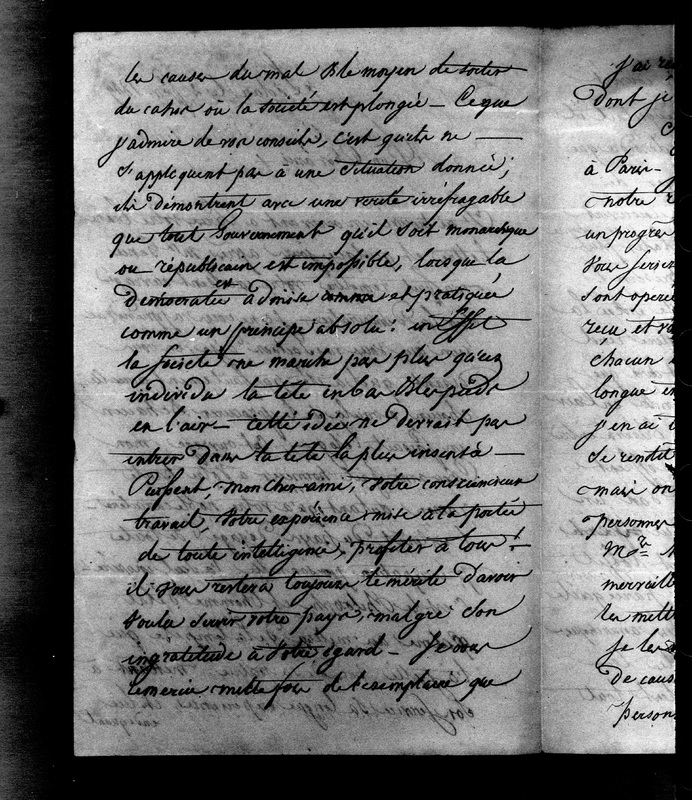 les causes du mal & le moyen de sortir
du cahos où la société est plongée — Ce que
j'admire de vos conseils, c'est qu'ils ne —
s'appliquent pas a une situation donnée;
ils démontrent avec une verité irréfragable
que tout Gouvernement qu'il soit monarchique
ou républicain est impossible, lorsque la
democratie est admise comme et pratiquée
comme un principe absolu: en Effet
la société ne marche pas plus qu'un
individu la tete en bas & les pieds
en l'air — cette idée ne devrait pas
entrer dans la tete la plus insensée —
Puissent, mon cher ami, votre consciencieux
travail, votre expérience mise a la portée
de toute intelligence, profiter à tous! —
il vous restera toujours le mérite d'avoir
voulu servir votre pays, malgré son
ingratitude à votre égard — Je vous
remercie mille fois de l'exemplaire que
j'ai
Dont je
à Paris —
notre
un progrès
vous seriez
sont operé
recu et
chacun
longue
j'en ai
se rendit
mais on
personnes
merveille
les mett
je les
de caus
person